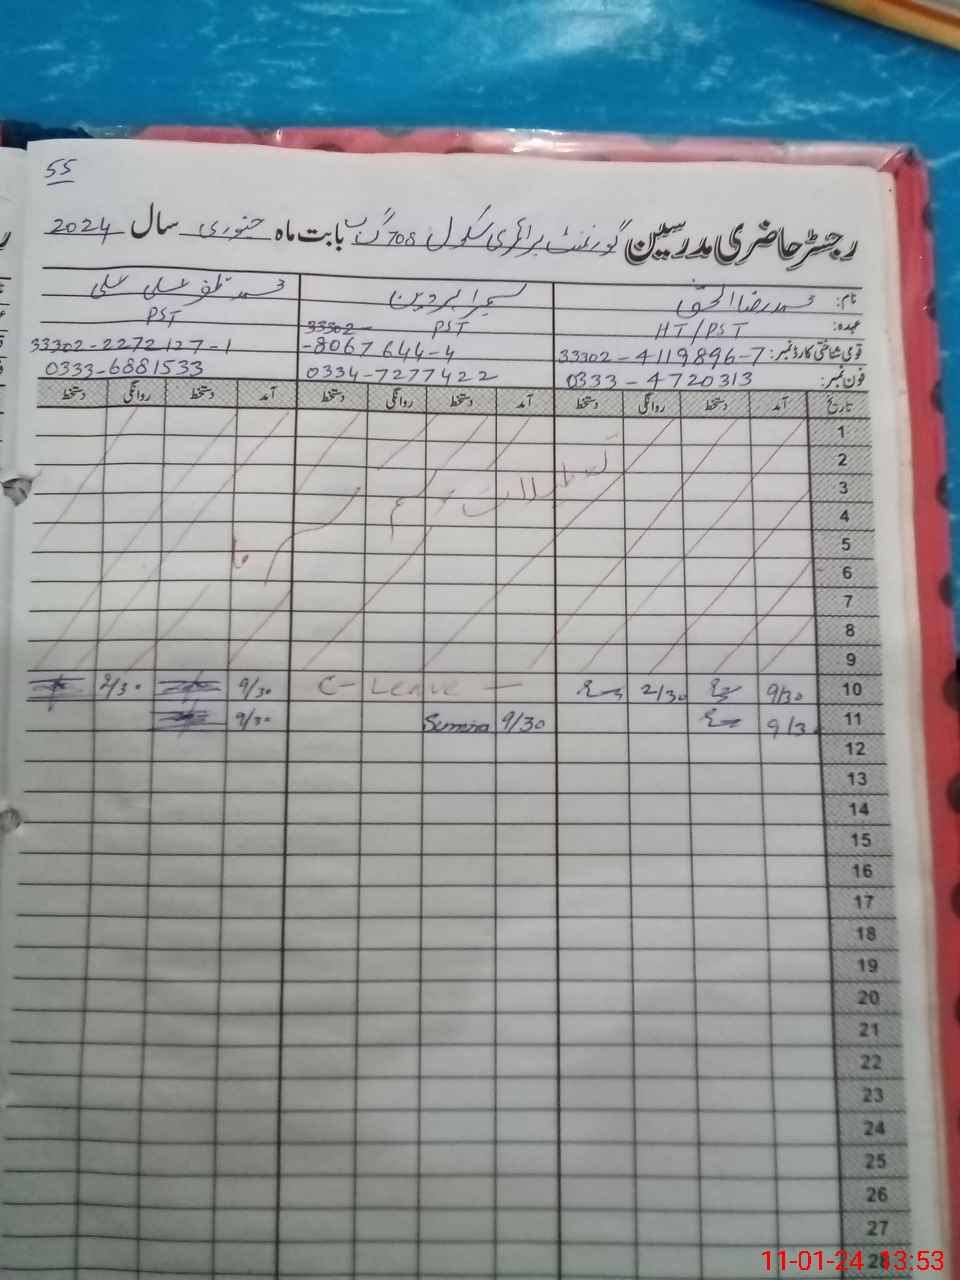 55
رجسٹر حاضری مدرسین گورنمنٹ پرائمری سکول 708 گ ب بابت ماہ جنوری سال 2024
نام: محمد رضا الحق سمیرا پروین محمد ظفر علی
عہدہ: HT/PST PST PST
قومی شناختی کارڈ نمبر: 33302-4119896-7 33302- -8067644-4 33302-2272127-1
فون نمبر: 0333-4720313 0334-7277422 0333-6881533
تاریخ آمد دستخط روانگی دستخط آمد دستخط روانگی دستخط آمد دستخط روانگی دستخط
1
2 تعطیلات موسم سرما
3
4
5
6
7
8
9
10 9/30 2/30 C- Leave - 9/30 2/30
11 9/3 9/30 9/30
12
13
14
15
16
17
18
19
20
21
22
23
24
25
26
27
28
11-01-24 13:53